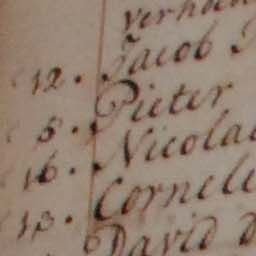 verhan
12. Jacob
8. Pieter
16. Nicola
13. Corneli
David d